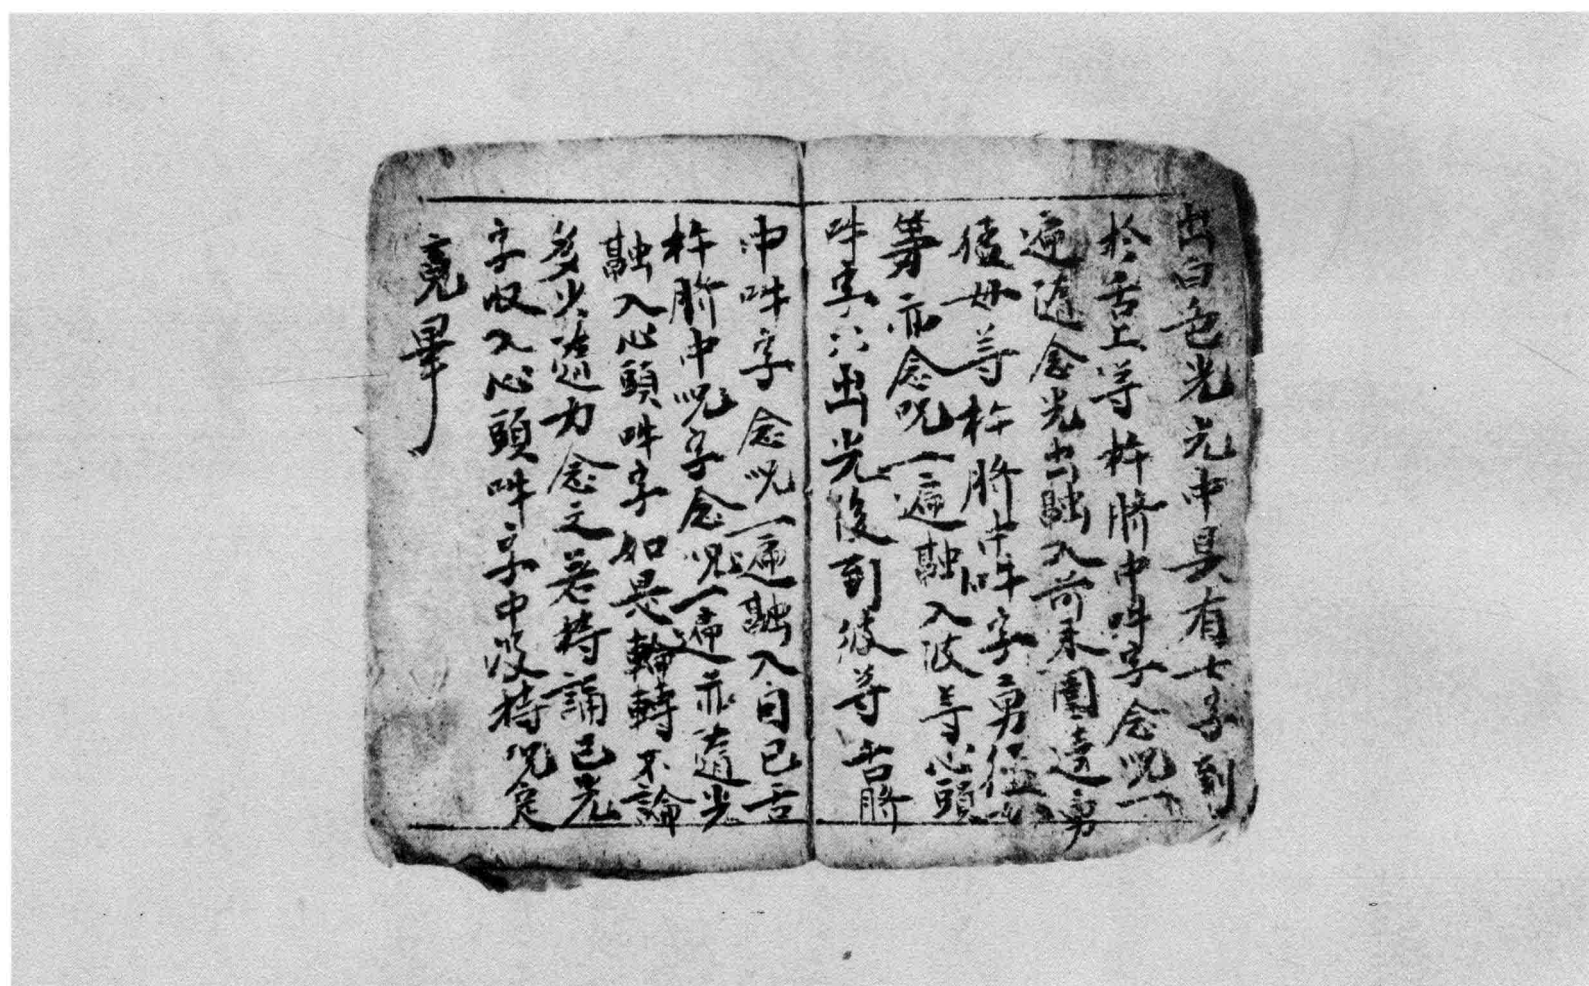 出白色光光中具有七字到
於舌上等杵臍中吽字念呪一
遍隨念光出融入前來圍遶勇
猛母等杵臍中吽字勇猛
等亦念呪一遍融入彼等心頭
吽字〻出光復到彼等舌臍
中吽字念呪一遍融入自己舌
杵臍中呪字念呪一遍亦随光
融入心頭吽字如是輪轉不論
多少随力念之若持誦已光
字收入心頭吽字中没持呪定
竟畢